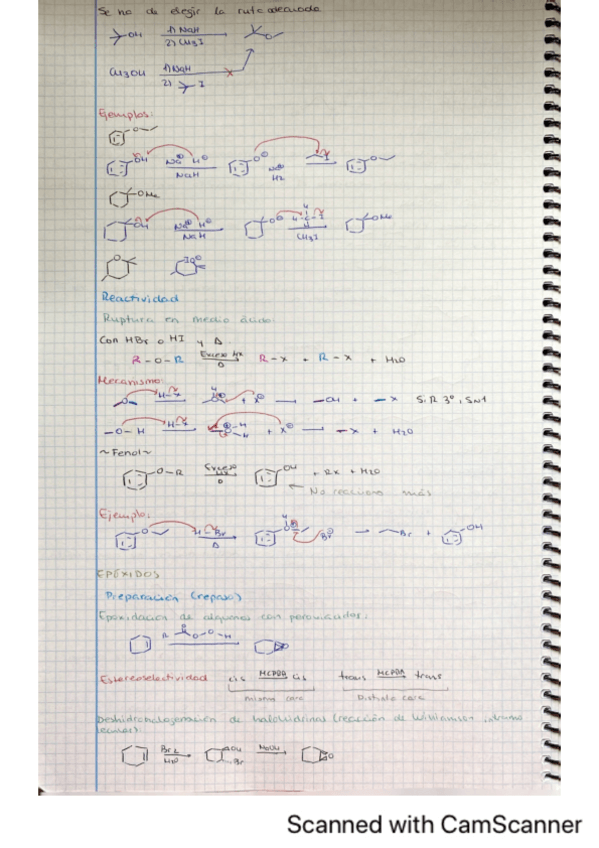 Se ha de elegir la ruta adecuada
OH 1) NaH
2) CH3I
CH3OH 1) NaH
2) I
Ejemplos:
OH Na⊕ H⊖ NaH Na⊕ H2
OMe
OH Na⊕ H⊖ NaH CH3I OMe
Reactividad
Ruptura en medio ácido:
Con HBr o HI y Δ
R-O-R Exceso HX Δ R-X + R-X + H2O
Mecanismo:
H-X + X⊖ → -OH + -X Si R 3º, SN1
-O-H H-X + X⊖ → -X + H2O
~Fenol~
O-R Exceso HX Δ OH + RX + H2O
No reacciona más
Ejemplo:
O H-Br Δ Br⊖ → Br + OH
EPÓXIDOS
Preparación (repaso)
Epoxidación de alquenos con peroxiácidos:
R O-O-H
Estereoselectividad cis MCPBA cis trans MCPBA trans
misma cara Distinta cara
Deshidrohalogenación de halohidrinas (reacción de Williamson
Br2 H2O OH Br NaOH O
Scanned with CamScanner